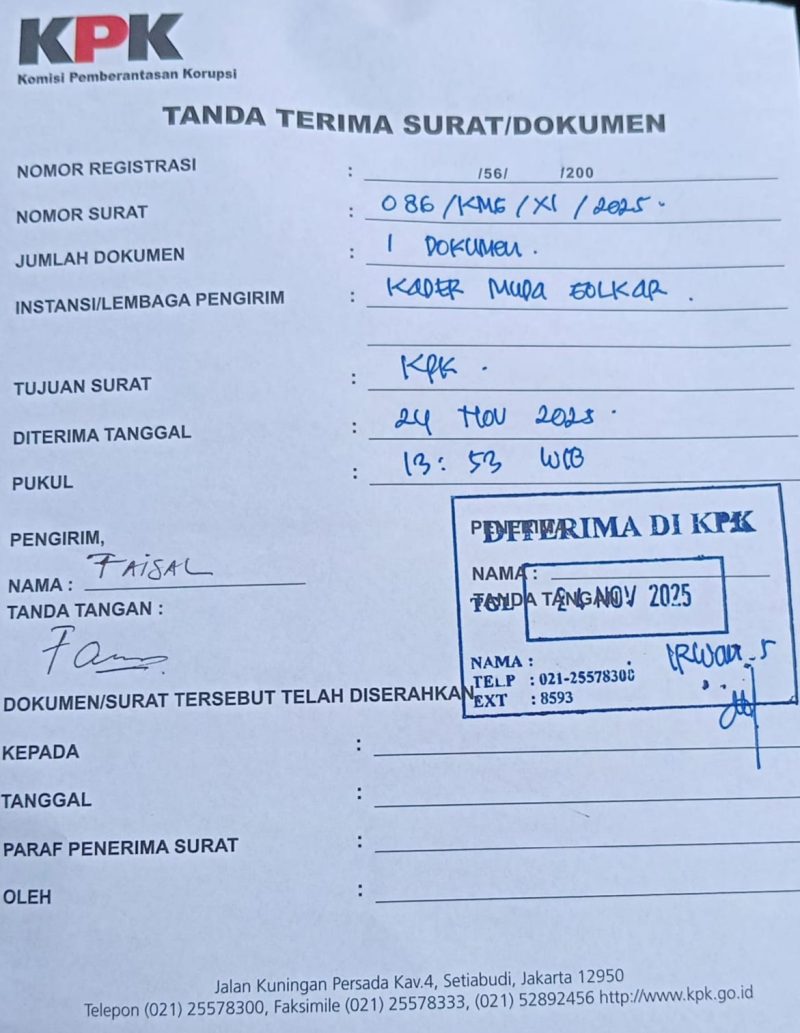 KPK
Komisi Pemberantasan Korupsi
TANDA TERIMA SURAT/DOKUMEN
NOMOR REGISTRASI : /56/ /200
NOMOR SURAT : 086/KMG/XI/2025.
JUMLAH DOKUMEN : 1 DOKUMEN.
INSTANSI/LEMBAGA PENGIRIM : KADER MUDA GOLKAR.
TUJUAN SURAT : KPK.
DITERIMA TANGGAL : 24 NOV 2025.
PUKUL : 13:53 WIB
PENGIRIM,
NAMA : FAISAL
TANDA TANGAN :
PENERIMA,
DITERIMA DI KPK
NAMA :
TANDA TANGAN :
TGL 24 NOV 2025
NAMA : IRWAN.S
TELP : 021-25578300
EXT : 8593
DOKUMEN/SURAT TERSEBUT TELAH DISERAHKAN
KEPADA :
TANGGAL :
PARAF PENERIMA SURAT :
OLEH :
Jalan Kuningan Persada Kav.4, Setiabudi, Jakarta 12950
Telepon (021) 25578300, Faksimile (021) 25578333, (021) 52892456 http://www.kpk.go.id